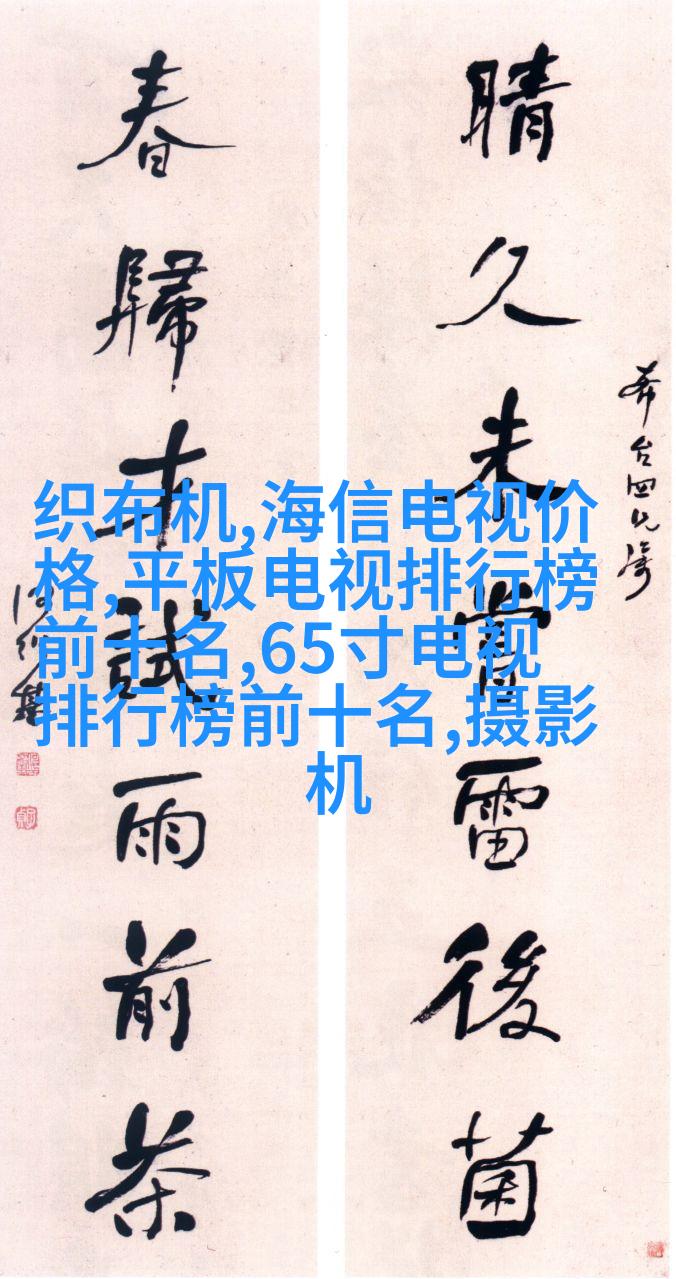 晴久未嘗雷後菌
春歸才試雨前茶
何紹基
织布机,海信电视价
格,平板电视排行榜
前十名,65寸电视
排行榜前十名,摄影
机